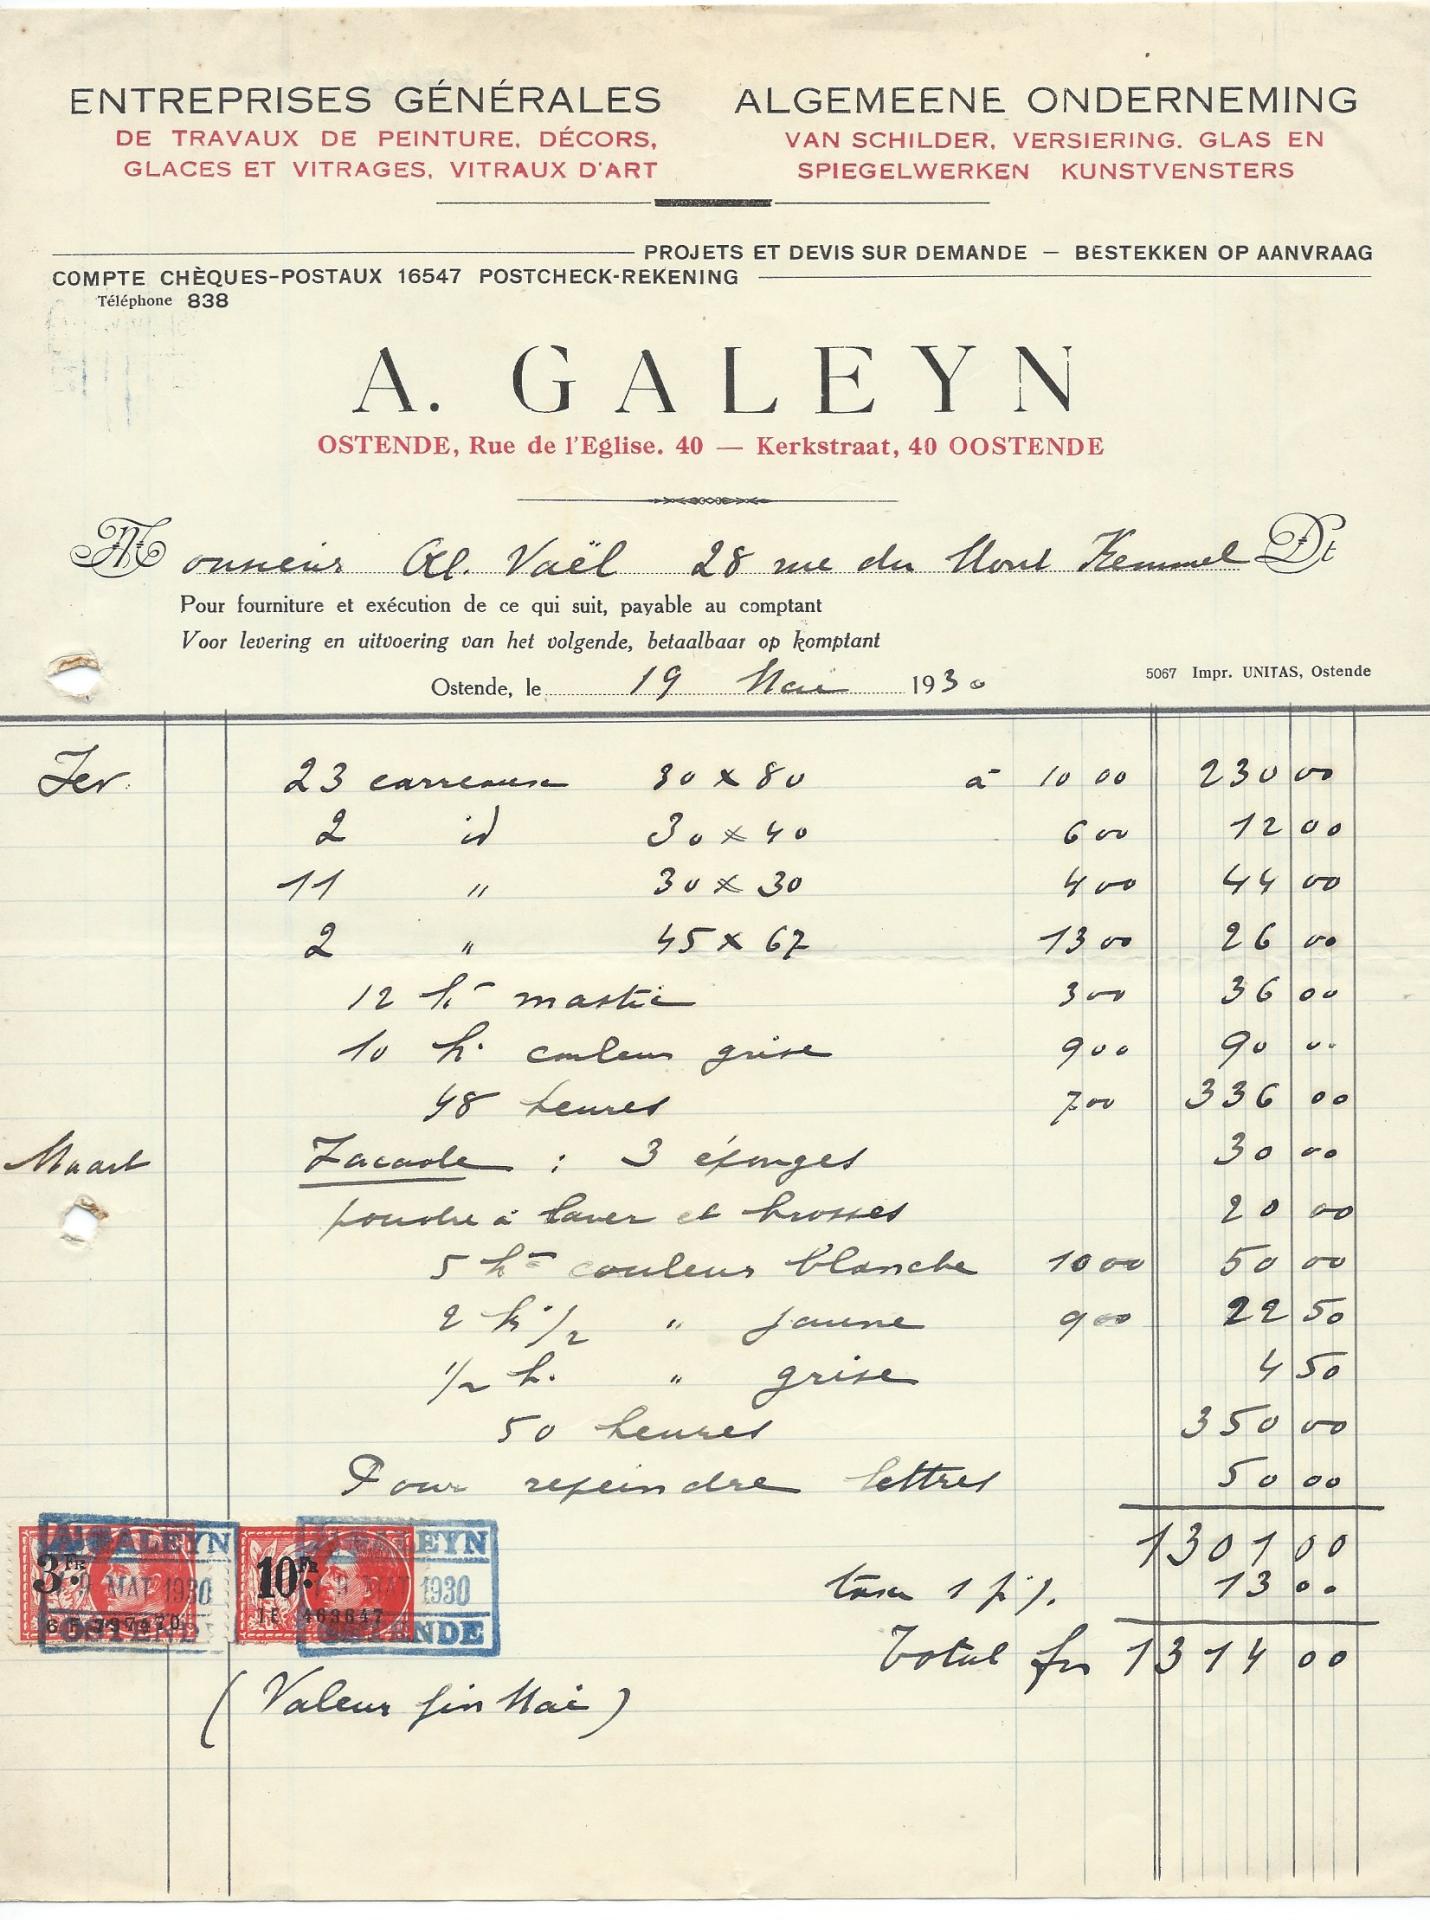 ENTREPRISES GÉNÉRALES
DE TRAVAUX DE PEINTURE, DÉCORS,
GLACES ET VITRAGES, VITRAUX D'ART
ALGEMEENE ONDERNEMING
VAN SCHILDER, VERSIERING. GLAS EN
SPIEGELWERKEN KUNSTVENSTERS
PROJETS ET DEVIS SUR DEMANDE — BESTEKKEN OP AANVRAAG
COMPTE CHÈQUES-POSTAUX 16547 POSTCHECK-REKENING
Téléphone 838
A. GALEYN
OSTENDE, Rue de l'Eglise. 40 — Kerkstraat, 40 OOSTENDE
Monsieur Al. Vaël 28 rue du Mont Kemmel Dt
Pour fourniture et exécution de ce qui suit, payable au comptant
Voor levering en uitvoering van het volgende, betaalbaar op komptant
Ostende, le 19 Mai 1930
5067 Impr. UNITAS, Ostende
Fev. 23 carreaux 30 x 80 à 10 00 230 00
2 id 30 x 40 6 00 12 00
11 " 30 x 30 4 00 44 00
2 " 45 x 67 13 00 26 00
12 k mastic 3 00 36 00
10 k. couleur grise 9 00 90 00
48 heures 7 00 336 00
Maart Facade : 3 éponges 30 00
poudre à laver et brosses 20 00
5 k couleur blanche 10 00 50 00
2 k 1/2 " jaune 9 00 22 50
1/2 k. " grise 4 50
50 heures 350 00
Pour repeindre lettres 50 00
1301 00
taxe 1 p%. 13 00
Total frs 1314 00
(Valeur fin Mai)
3 FR
A. GALEYN
9 MAI 1930
OSTENDE
10 FR
GALEYN
9 MAI 1930
463647
OSTENDE